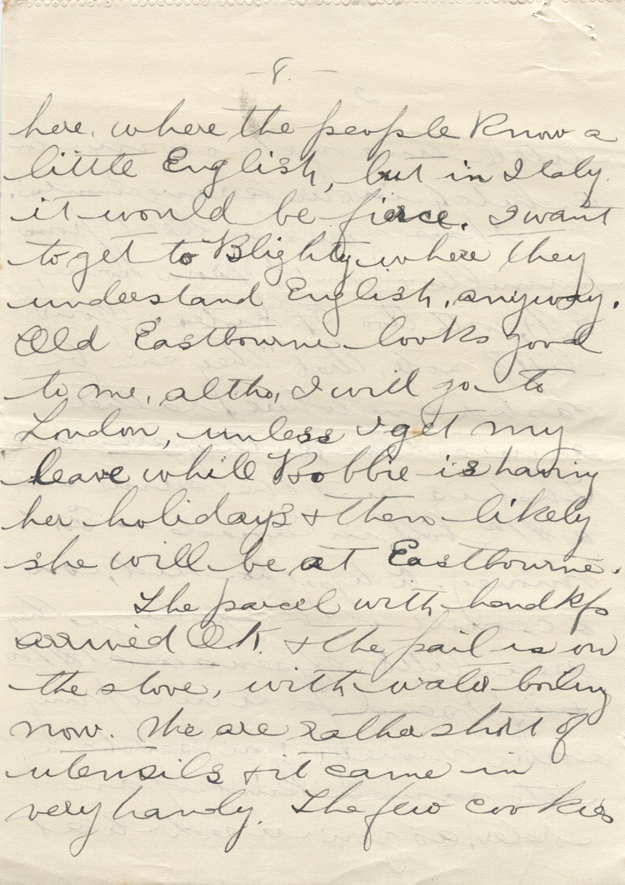 -8.-
here. where the people know a
little English, but in Italy.
it would be fierce. I want
to get to Blighty where they
understand English, anyway.
Old Eastbourne looks good
to me, altho, I will go to
London, unless I get my
leave while Bobbie is having
her holidays & then likely
she will be at Eastbourne.
The parcel with handkfs
arrived O.K. & the pail is on
the stove, with water boiling
now. We are rather short of
utensils & it came in
very handy. The few cookies